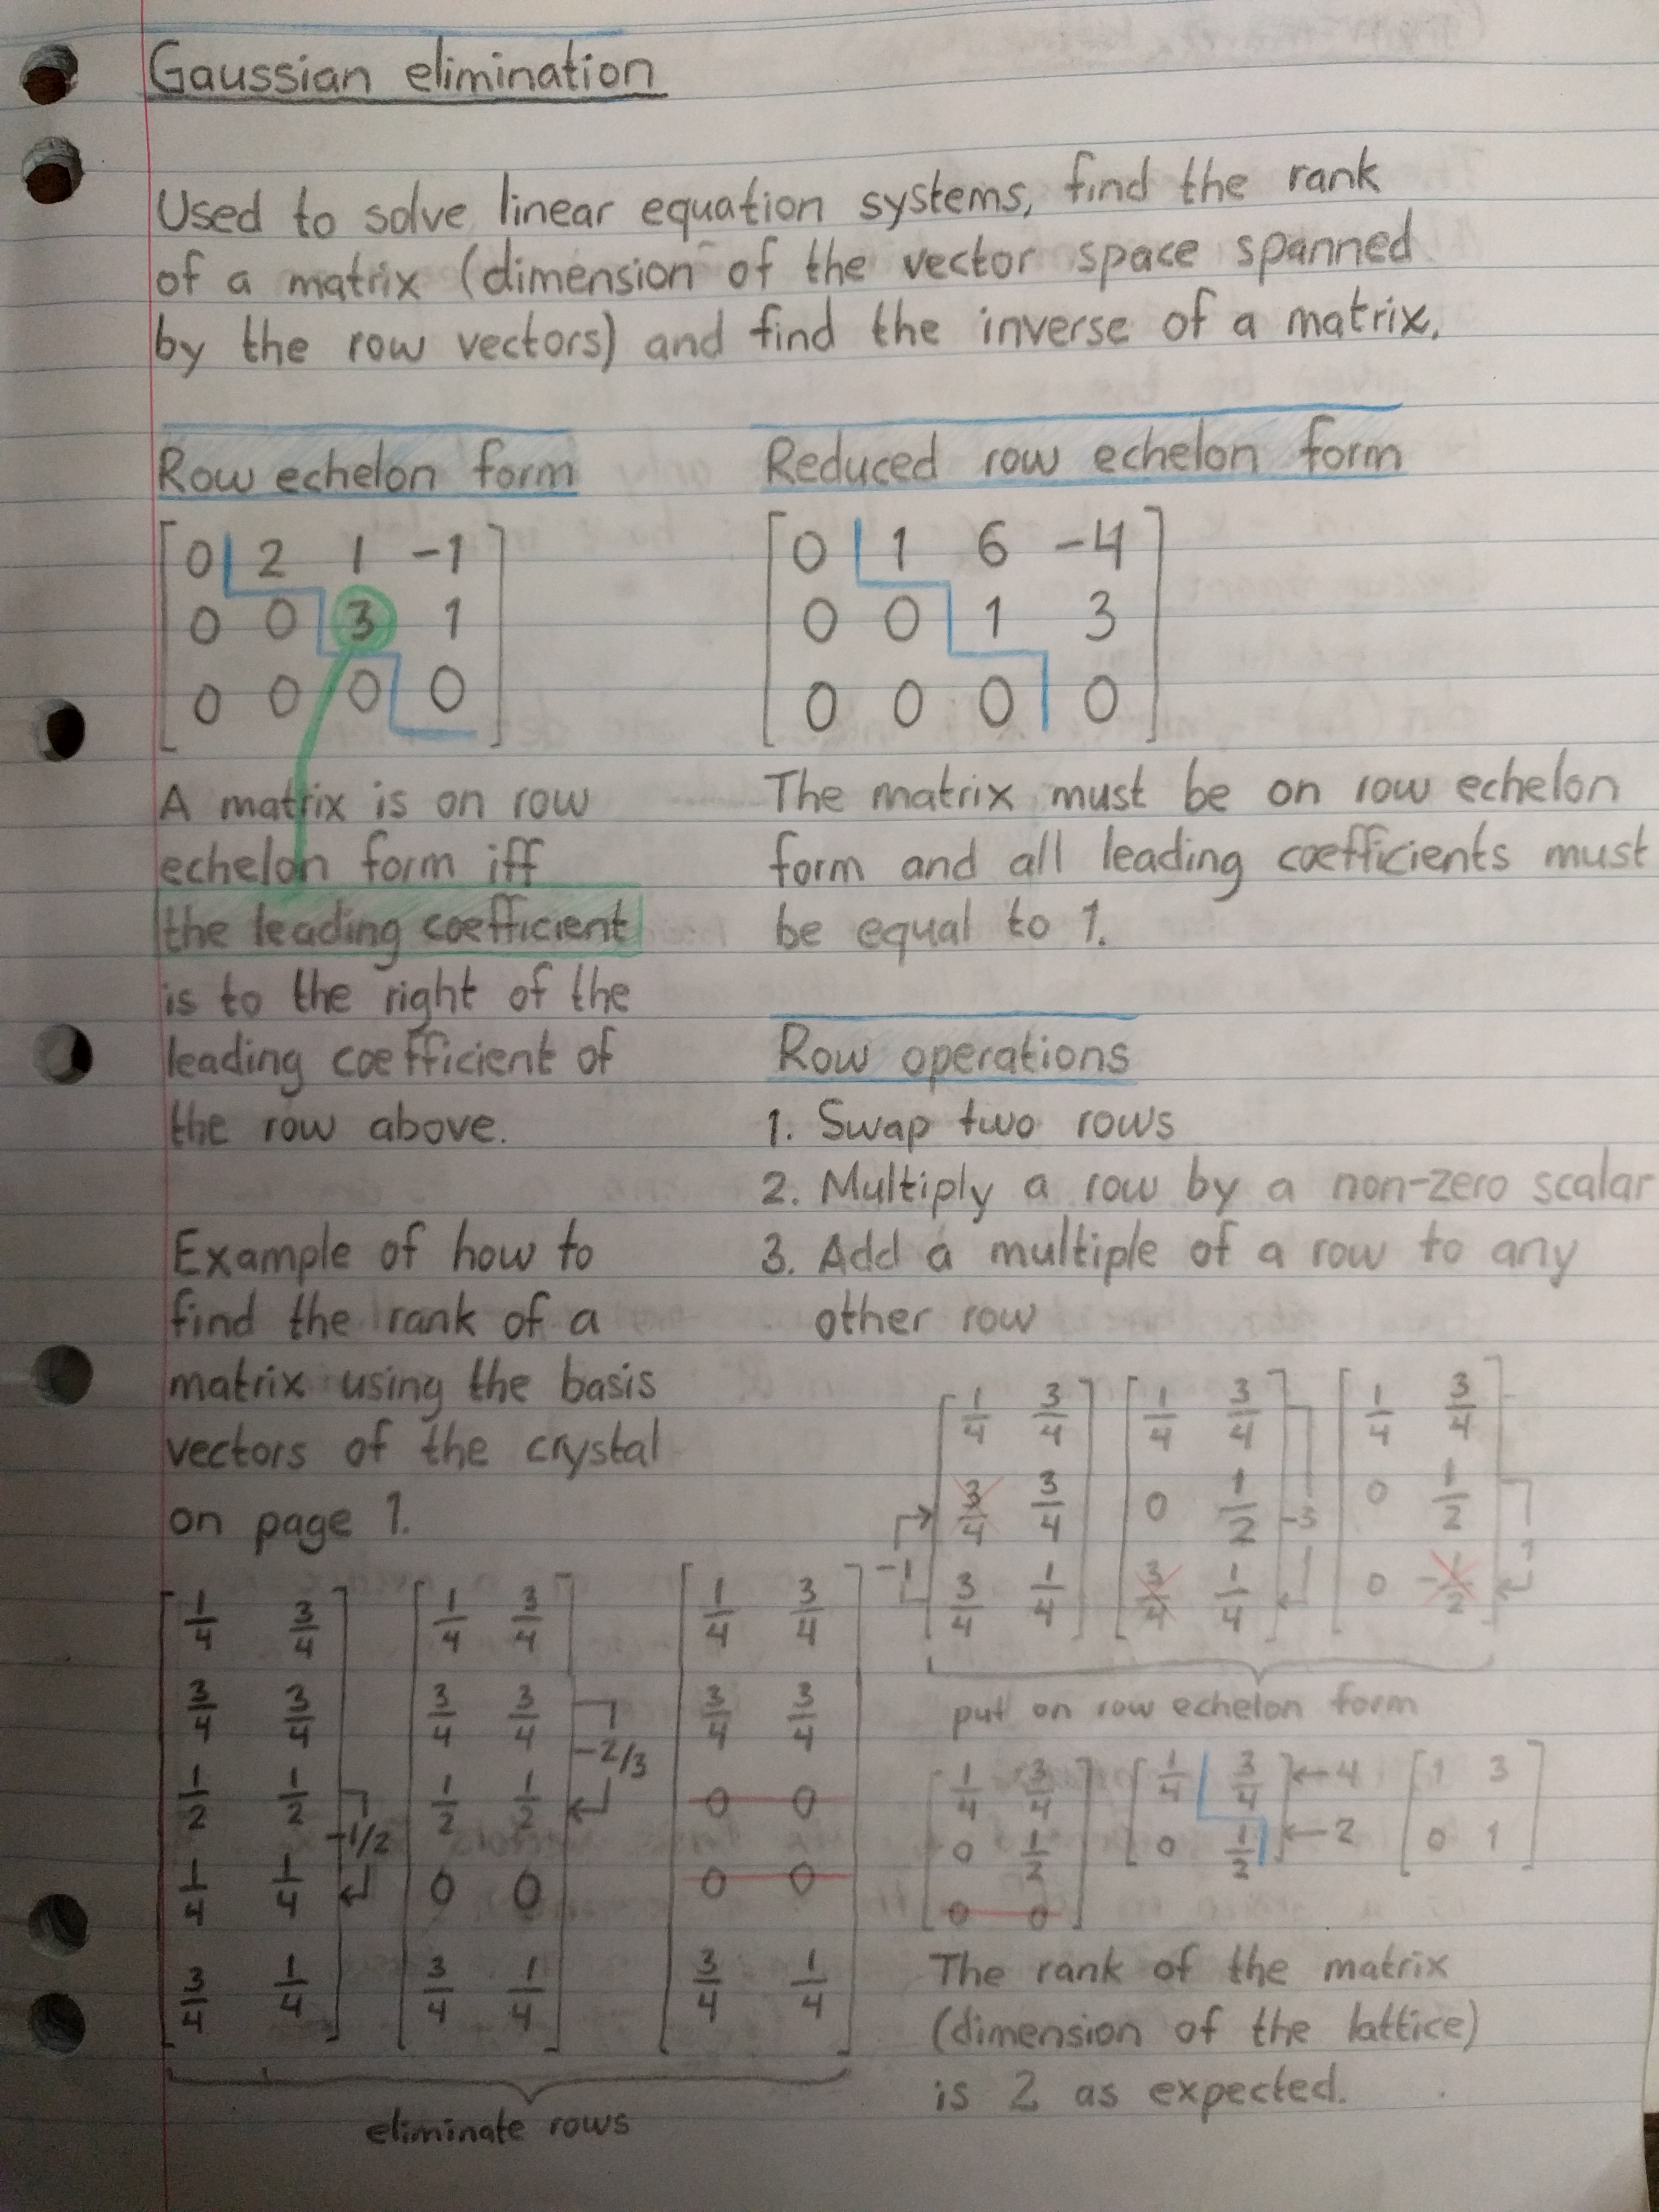 Gaussian elimination
Used to solve linear equation systems, find the rank
of a matrix (dimension of the vector space spanned
by the row vectors) and find the inverse of a matrix.
Row echelon form
0 2 1 -1
0 0 3 1
0 0 0 0
A matrix is on row
echelon form iff
the leading coefficient
is to the right of the
leading coefficient of
the row above.
Reduced row echelon form
0 1 6 -4
0 0 1 3
0 0 0 0
The matrix must be on row echelon
form and all leading coefficients must
be equal to 1.
Row operations
1. Swap two rows
2. Multiply a row by a non-zero scalar
3. Add a multiple of a row to any
other row
Example of how to
find the rank of a
matrix using the basis
vectors of the crystal
on page 1.
1/4 3/4 1/4 3/4 1/4 3/4
3/4 3/4 3/4 3/4 3/4 3/4
-2/3
1/2 1/2 1/2 1/2 0 0
-1/2
1/4 1/4 0 0 0 0
3/4 1/4 3/4 1/4 3/4 1/4
eliminate rows
1/4 3/4 1/4 3/4 1/4 3/4
3/4 3/4 0 1/2 -3 0 1/2
-1 3/4 1/4 3/4 1/4 0 -1/2 1
put on row echelon form
1/4 3/4 1/4 3/4 ←4 1 3
0 1/2 0 1/2 ←2 0 1
0 0
The rank of the matrix
(dimension of the lattice)
is 2 as expected.